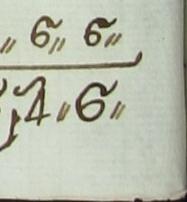 〃 6〃 6〃
4〃6〃